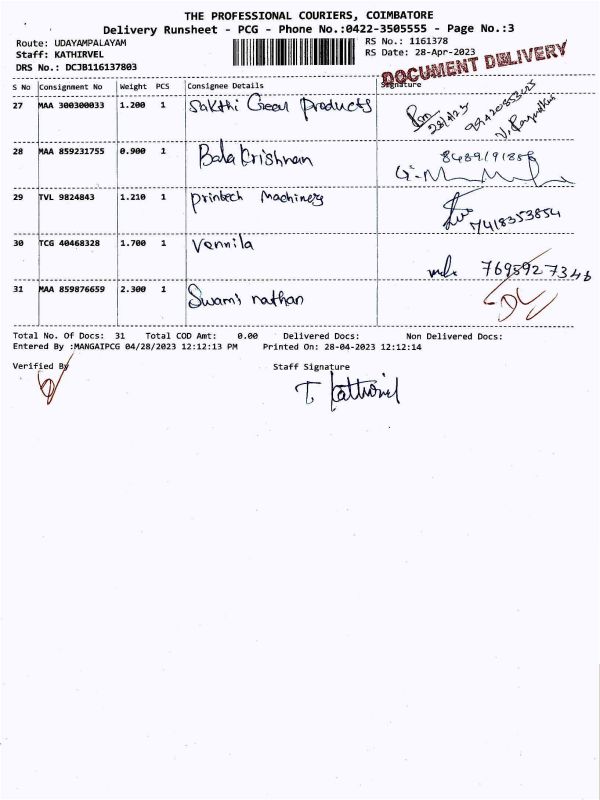 THE PROFESSIONAL COURIERS, COIMBATORE
Delivery Runsheet - PCG - Phone No.:0422-3505555 - Page No.:3
Route: UDAYAMPALAYAM
RS No.: 1161378
Staff: KATHIRVEL
RS Date: 28-Apr-2023
DRS No.: DCJB1161137803
DOCUMENT DELIVERY
S No Consignment No Weight PCS Consignee Details Signature
27 MAA 300300033 1.200 1 Sakthi Gear Products
28/4/23
28 MAA 859231755 0.900 1 Bala Krishnan
29 TVL 9824843 1.210 1 Printech Machinery 7418353854
30 TCG 40468328 1.700 1 Vennila
31 MAA 859876659 2.300 1 Swami nathan
DL
Total No. Of Docs: 31 Total COD Amt: 0.00 Delivered Docs: Non Delivered Docs:
Entered By :MANGAIPCG 04/28/2023 12:12:13 PM Printed On: 28-04-2023 12:12:14
Verified By Staff Signature
T. Kathirvel